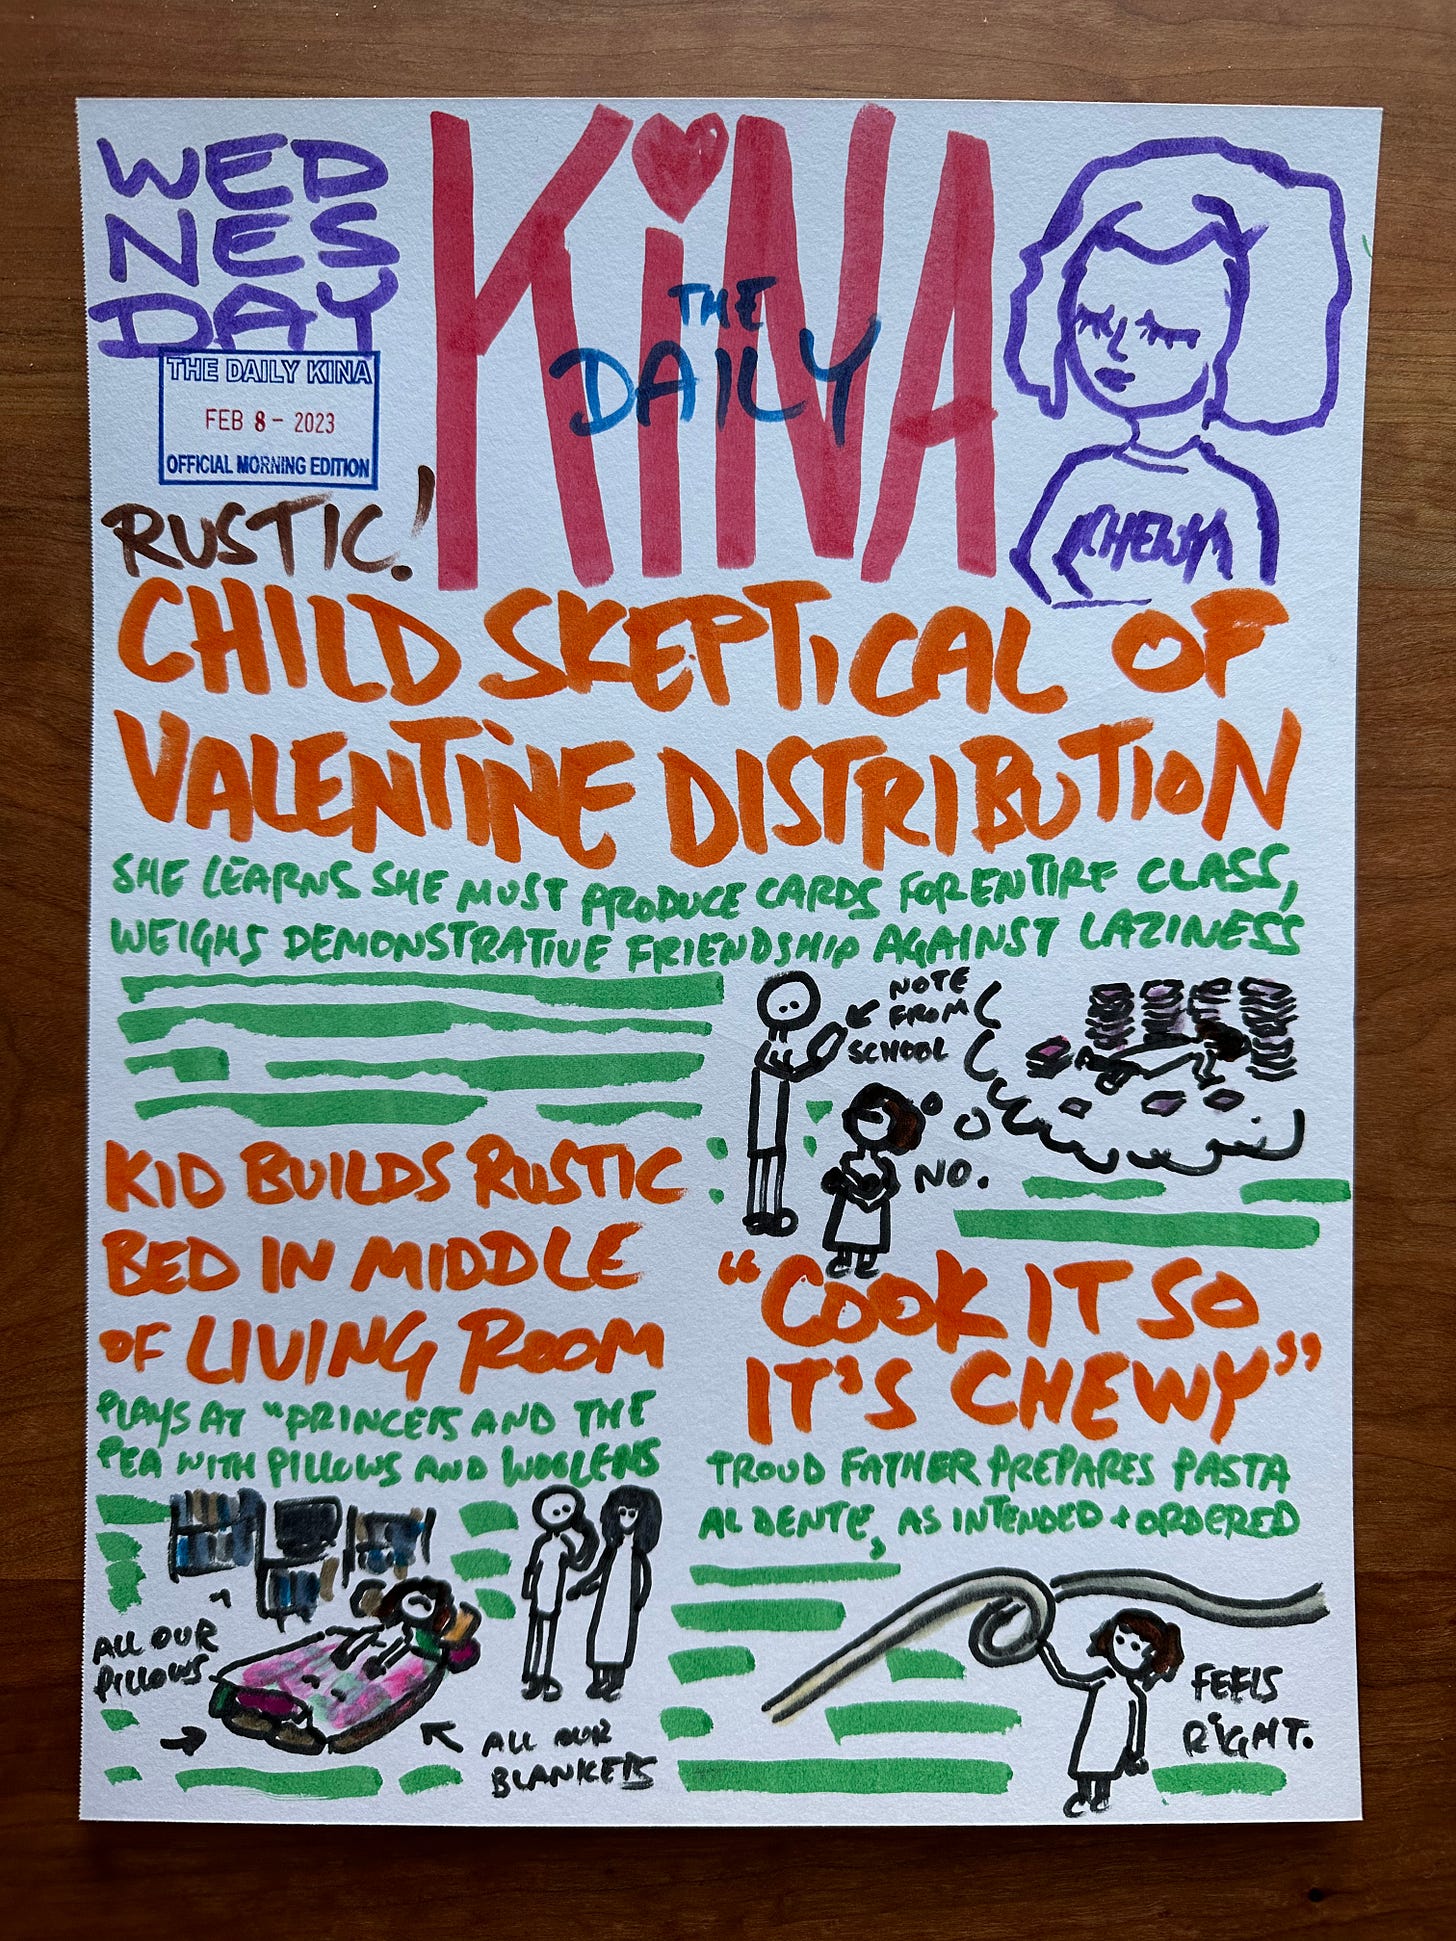 WED
NES
DAY
THE DAILY KINA
FEB 8 - 2023
OFFICIAL MORNING EDITION
KiNA
THE
DAILY
CHEWY
RUSTIC!
CHILD SKEPTiCAL OF
VALENTiNE DISTRIBUTION
SHE LEARNS SHE MUST PRODUCE CARDS FOR ENTIRE CLASS,
WEIGHS DEMONSTRATIVE FRIENDSHIP AGAINST LAZINESS
NOTE
FROM
SCHOOL
NO.
KID BUILDS RUSTIC
BED IN MIDDLE
OF LIVING ROOM
PLAYS AT "PRINCESS AND THE
PEA WITH PILLOWS AND WOOLENS
ALL OUR
PILLOWS
ALL OUR
BLANKETS
"COOK IT SO
IT'S CHEWY"
TROUD FATHER PREPARES PASTA
AL DENTE, AS INTENDED + ORDERED
FEELS
RiGHT.